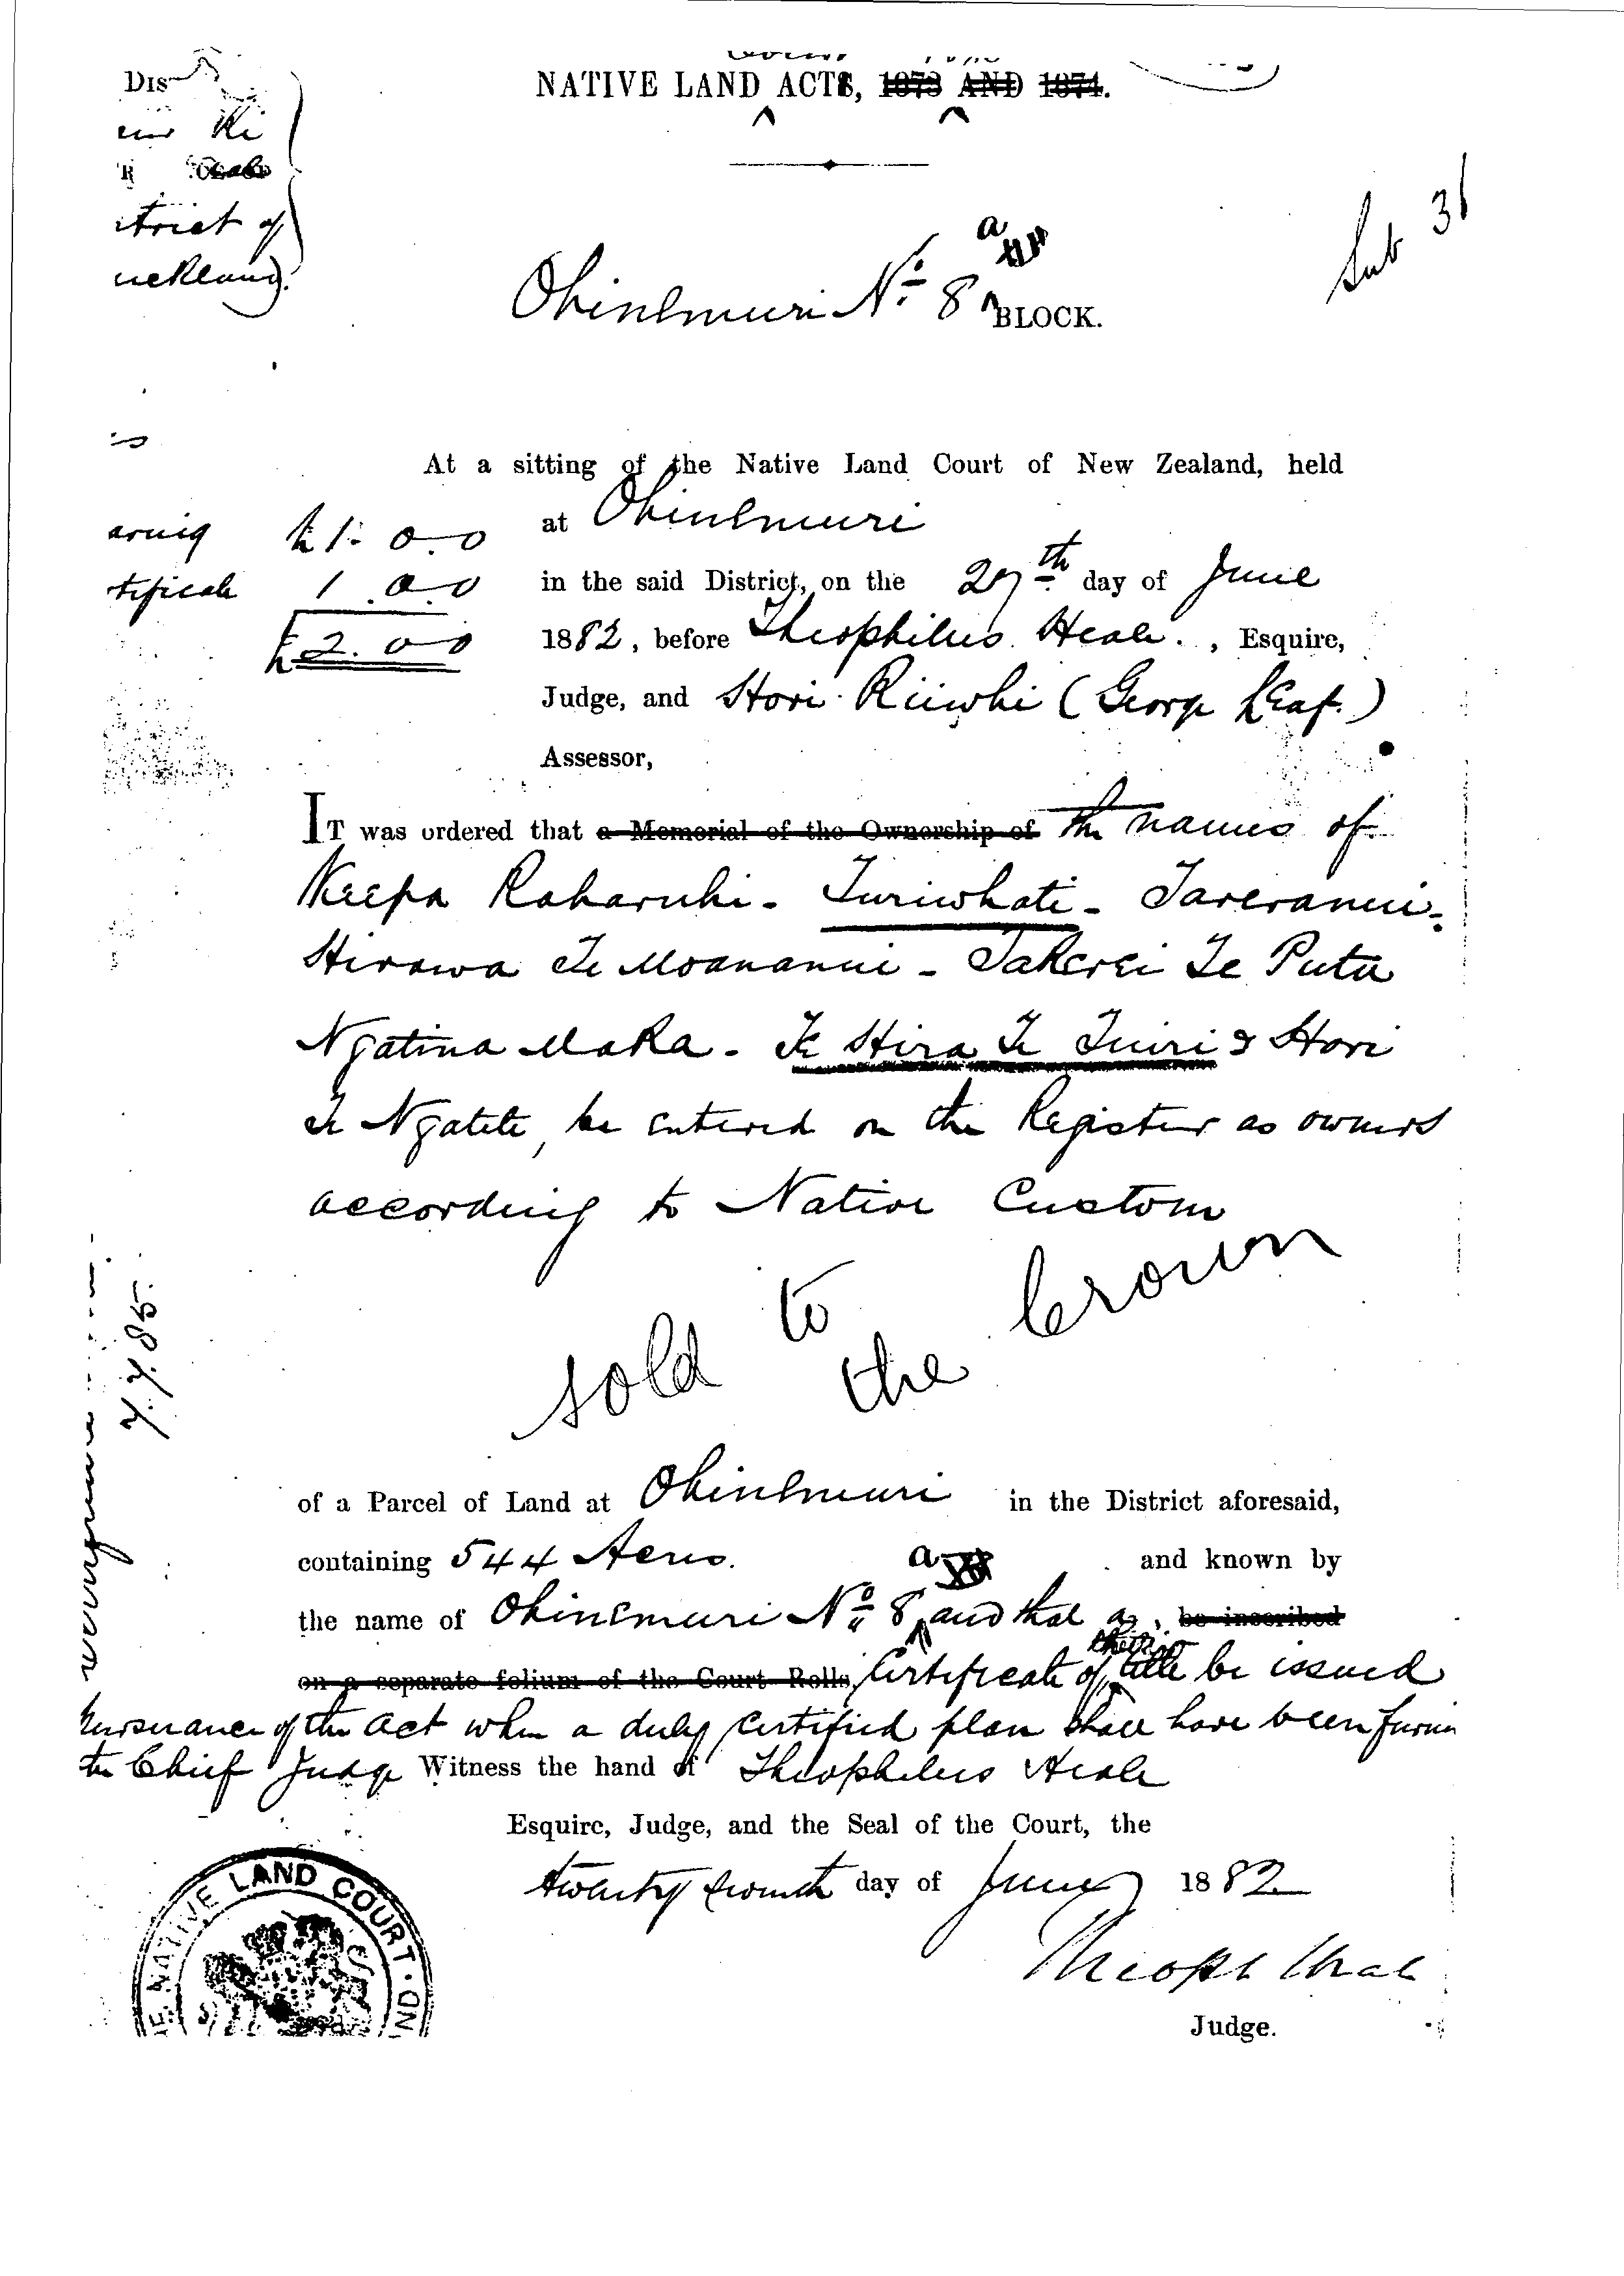 NATIVE LAND ACTS, 1873 AND 1874.
DIS
Sub 31
trict of
uckland.
a
Ohinemuri No. 8 BLOCK.
At a sitting of the Native Land Court of New Zealand, held
at Ohinemuri
£1. 0. 0
in the said District, on the 27th day of June
tificate 1. 0. 0
1882, before Theophilus Heale., Esquire,
£2. 0 0
Judge, and Hori Riiwhi (George Leaf.)
Assessor,
IT was ordered that a Memorial of the Ownership of the names of
Keepa Raharuhi - Turiwhati - Tareranui -
Hirawa Te Moananui - Takerei Te Putu
Ngatina Maka - Te Hira Te Tuiri & Hori
Te Ngatete, be entered on the Register as owners
according to Native Custom
sold to the Crown
7.7.85.
of a Parcel of Land at Ohinemuri in the District aforesaid,
containing 544 Acres. and known by
a
the name of Ohinemuri No. 8 and that a be inscribed
their
on a separate folium of the Court Rolls, Certificate of title be issued
pursuance of the Act when a duly certified plan shall have been furni
the Chief Judge Witness the hand of Theophilus Heale
Esquire, Judge, and the Seal of the Court, the
twenty seventh day of June 1882
Theoph Heale
Judge.
NATIVE LAND COURT